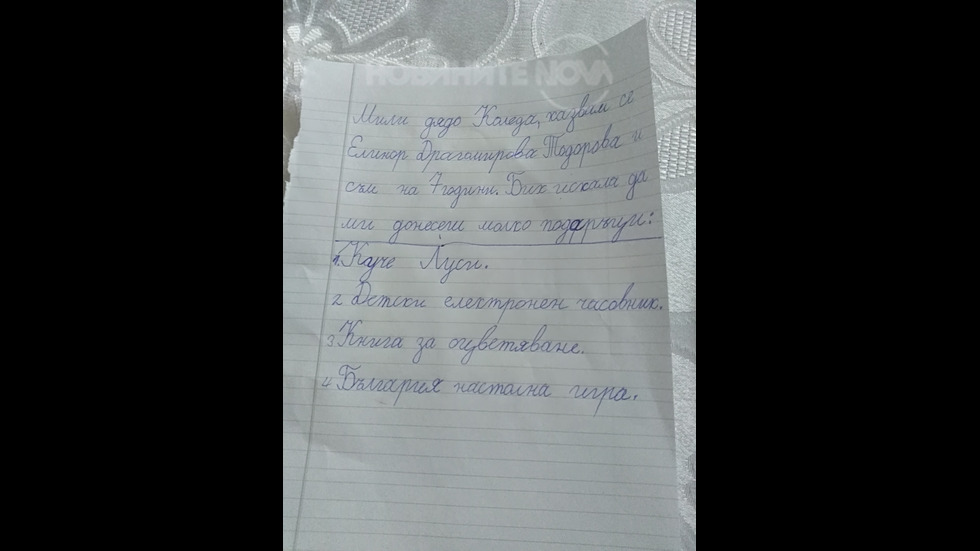 НОВИНИТЕ NOVA
Мили дядо Коледа, казвам се
Елинор Драгомирова Тодорова и
съм на 7 години. Бих искала да
ми донесеш малко подаръци:
1. Куче Луси.
2 Детски електронен часовник.
3 Книга за оцветяване.
4 България настолна игра.